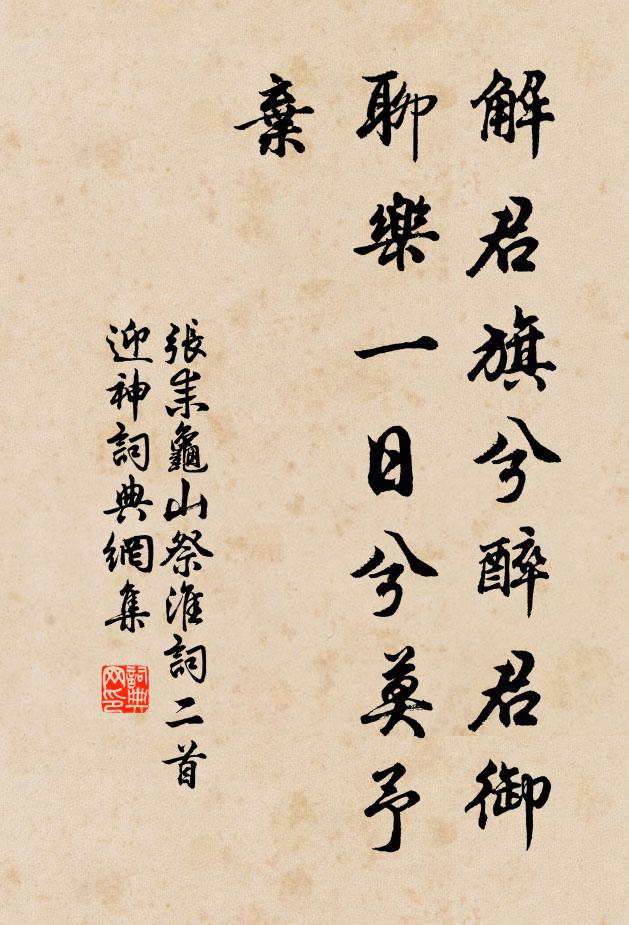 解君旗兮醉君御
聊樂一日兮莫予
棄
張耒龜山祭淮詞二首
迎神詞典網集
詞典
网印